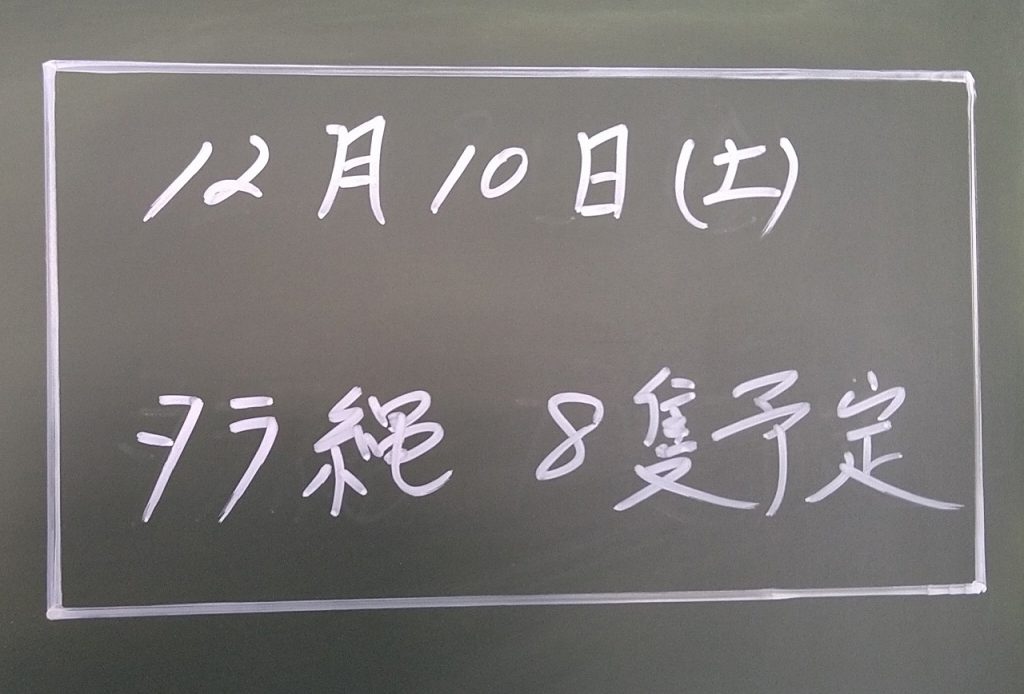 12月10日(土)
タラ縄 8隻予定